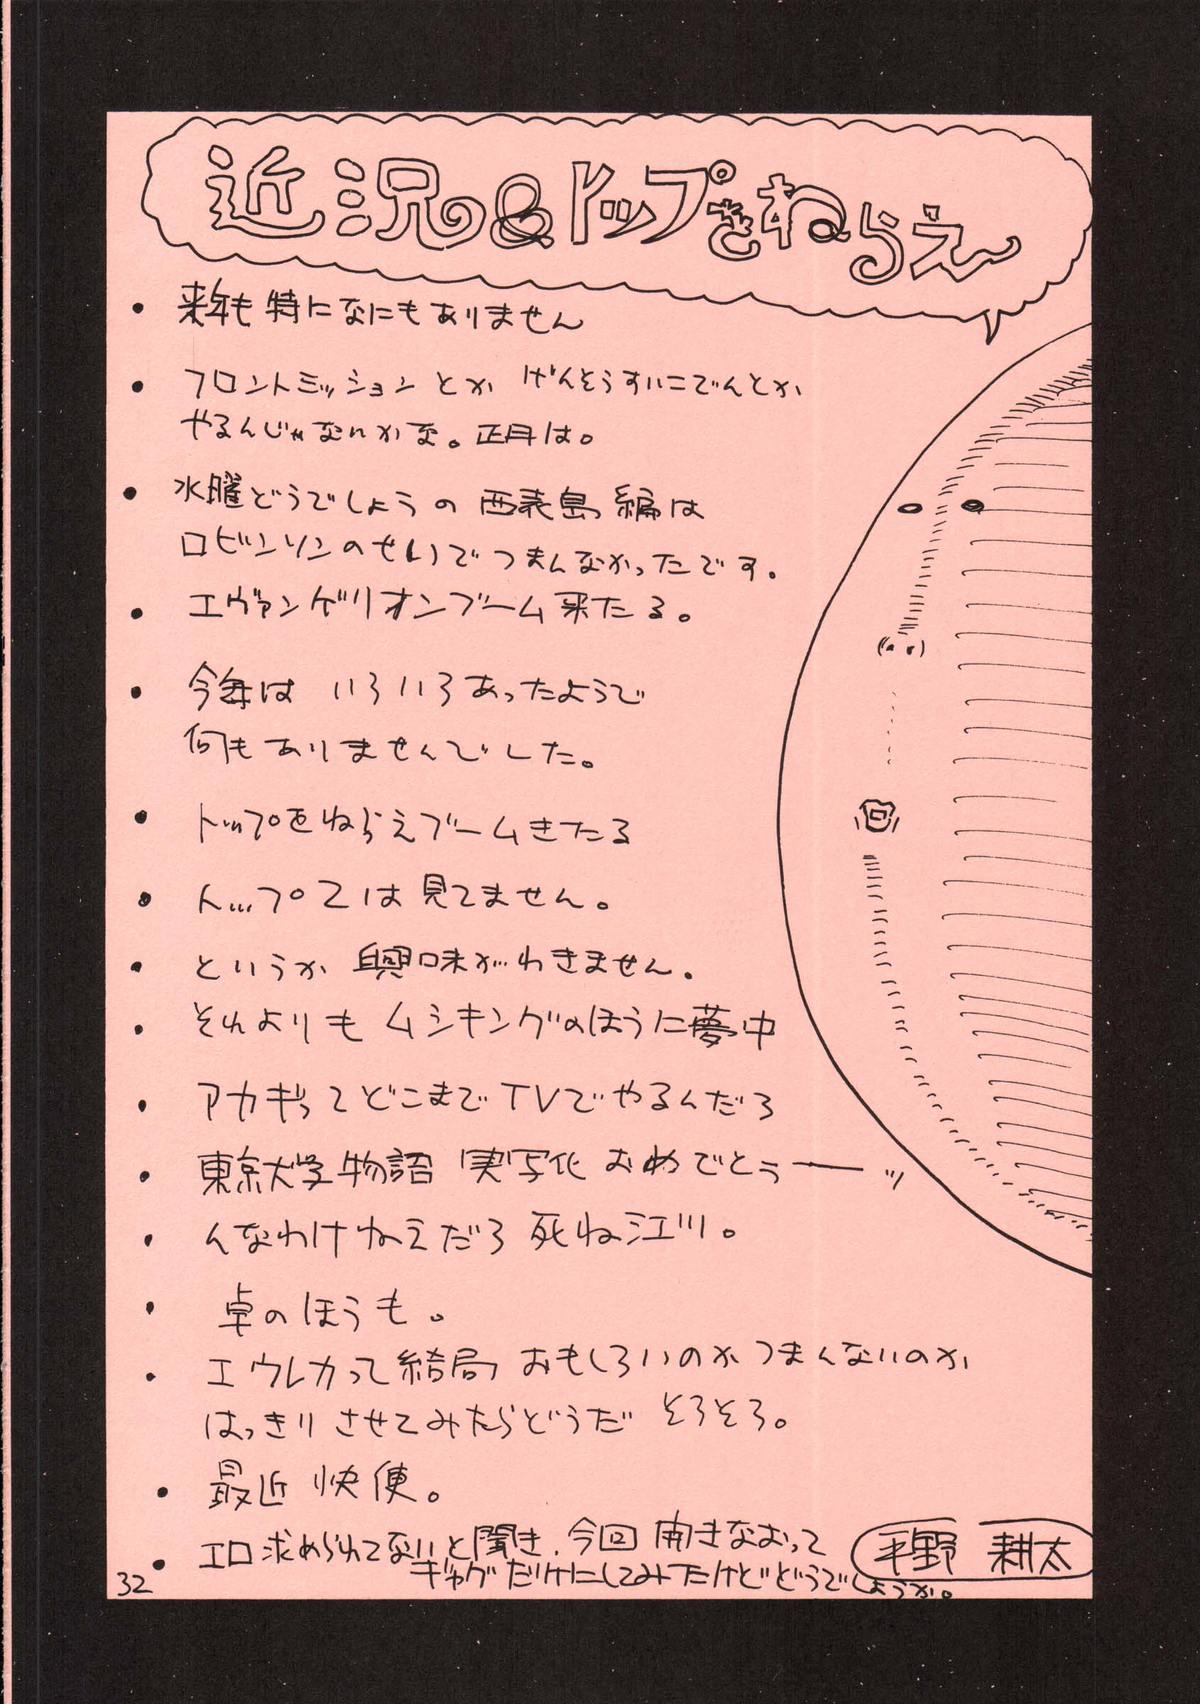 近況の&トップをねらえ〜
・来年も特になにもありません
・フロントミッションとか げんそうすいこでんとか
やるんじゃないかな。正月は。
・水曜どうでしょうの 西表島編は
ロビンソンのせいでつまんなかったです。
・エヴァンゲリオンブーム来たる。
・今年は いろいろあったようで
何もありませんでした。
・トップをねらえブームきたる
・トップ2は見てません。
・というか 興味がわきません。
・それよりも ムシキングのほうに夢中
・アカギってどこまでTVでやるんだろ
・東京大学物語 実写化 おめでとぅーッ
・んなわけねえだろ 死ね江川。
・卓のほうも。
・エウレカって結局 おもしろいのか つまんないのか
はっきりさせてみたらどうだ そろそろ。
・最近 快便。
・エロ求められてないと聞き、今回 開きなおって
ギャグだけにしてみたけどどうでしょうか。
平野 耕太
32